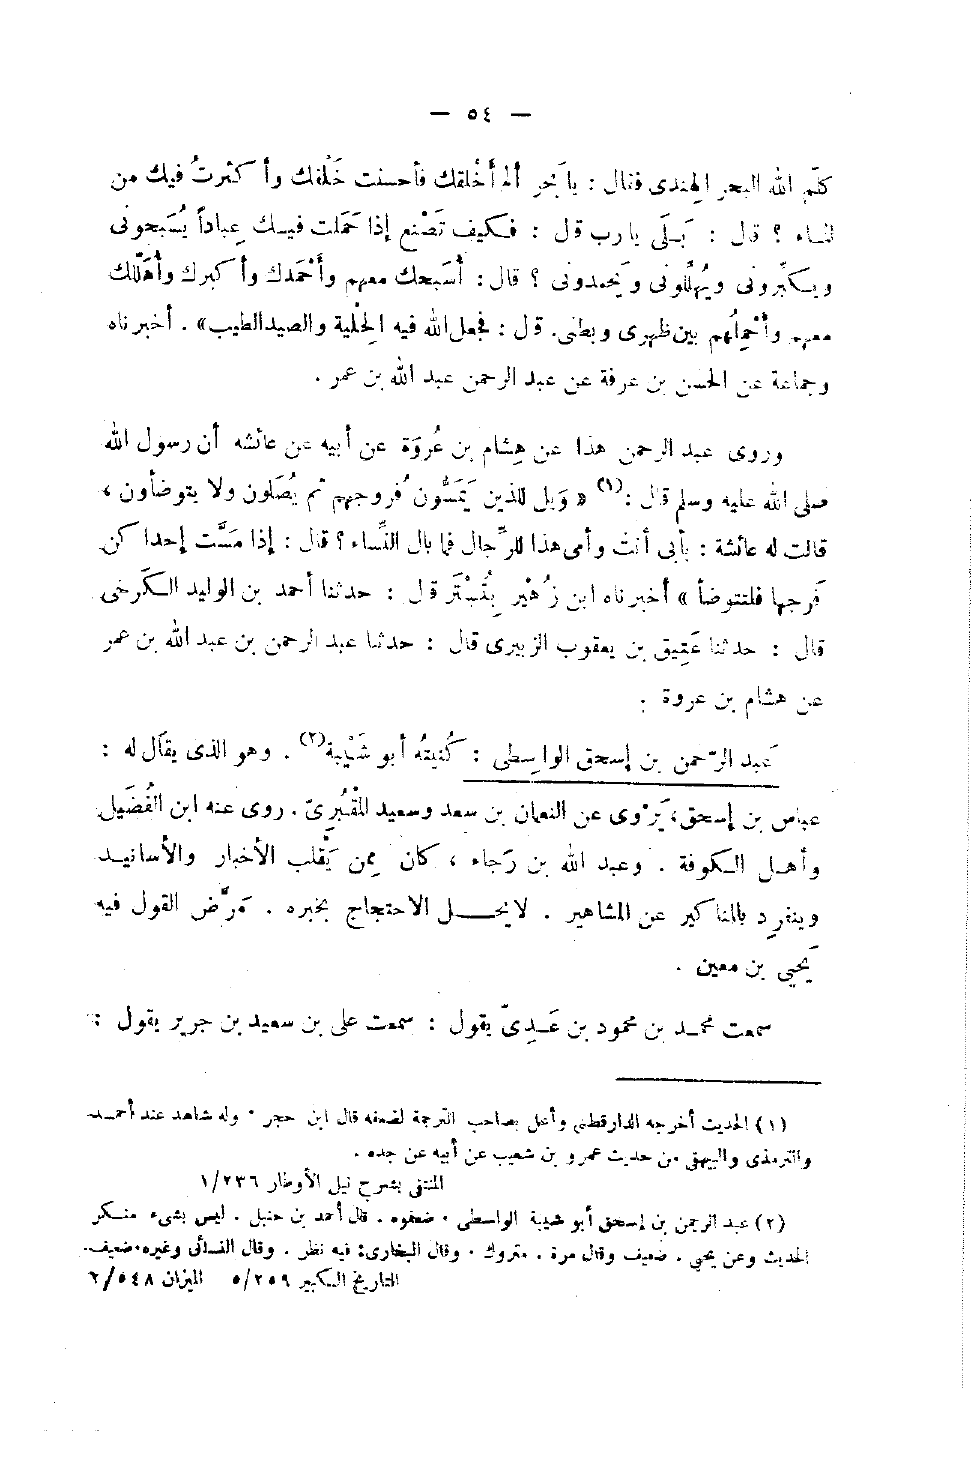 — ٥٤ —
كلّم الله البحر الهندى فقال : يا بَحر ألم أَخْلقك فأحسنت خَلْقك وأكثرتُ فيك من
الماء ؟ قال : بَلَى يا رب قال : فكيف تَصْنع إذا حَمَلت فيك عِباداً يُسَبحونى
ويكبِّرونى ويُهلِّلونى وَيحمدونى ؟ قال : أُسَبحك معهم وأَحْمَدك وأكبرك وأُهَلِّلك
معهم وأَحْمِلُهم بين ظهرى وبطنى. قال : فجعل الله فيه الحِلْية والصيد الطيب» . أخبرناه
وجماعة عن الحسن بن عرفة عن عبد الرحمن عبد الله بن عمر .
وروى عبد الرحمن هذا عن هِشام بن عُروَة عن أبيه عن عائشه أن رسول الله
صلى الله عليه وسلم قال :(١) « وَيل للذين يَمَسُّون فُروجهم ثم يُصَلون ولا يتوضأون ،
قالت له عائشة : بأبى أنتَ وأمى هذا للرِّجال فما بال النِّساء ؟ قال : إذا مَسَّت إحداكن
فَرجها فلتتوضأ » أخبرناه ابن زُهَيْر بِتُسْتَر قال : حدثنا أحمد بن الوليد الكَرخى
قال : حدثنا عَتِيق بن يعقوب الزبيرى قال : حدثنا عبد الرحمن بن عبد الله بن عمر
عن هشام بن عروة .
عَبد الرّحمن بن إسحق الواسِطى : كُنيتُه أبو شَيْبة(٢) . وهو الذى يقَال له :
عباس بن إسحق، يَرْوى عن النعمان بن سعد وسعيد المْقُبرِىّ . روى عنه ابن الفُضَيل
وأهل الكوفة . وعبد الله بن رَجاء ، كان مِمن يَقْلب الأخبار والأسانيد
وينفرِد بالمناكير عن المشاهير . لايحل الاحتجاج بخبره . مَرَّض القول فيه
يَحيى بن معين .
سمعت محمد بن محمود بن عَدِىّ يقول : سمعت على بن سعيد بن جرير يقول :
(١) الحديث أخرجه الدارقطنى وأعل بصاحب الترجمة لضعفه قال ابن حجر . وله شاهد عند أحمد
والترمذى والبيهقى من حديث عمرو بن شعيب عن أبيه عن جده .
المنتقى بشرح نيل الأوطار ١/٢٣٦
(٢) عبد الرحمن بن إسحق أبو شيبة الواسطى . ضعفوه . قال أحمد بن حنبل . ليس بشىء منكر
الحديث وعن يحيى . ضعيف وقال مرة . متروك . وقال البخارى: فيه نظر . وقال النسائى وغيره. ضعيف.
التاريخ الكبير ٥/٢٥٩ الميزان ٢/٥٤٨